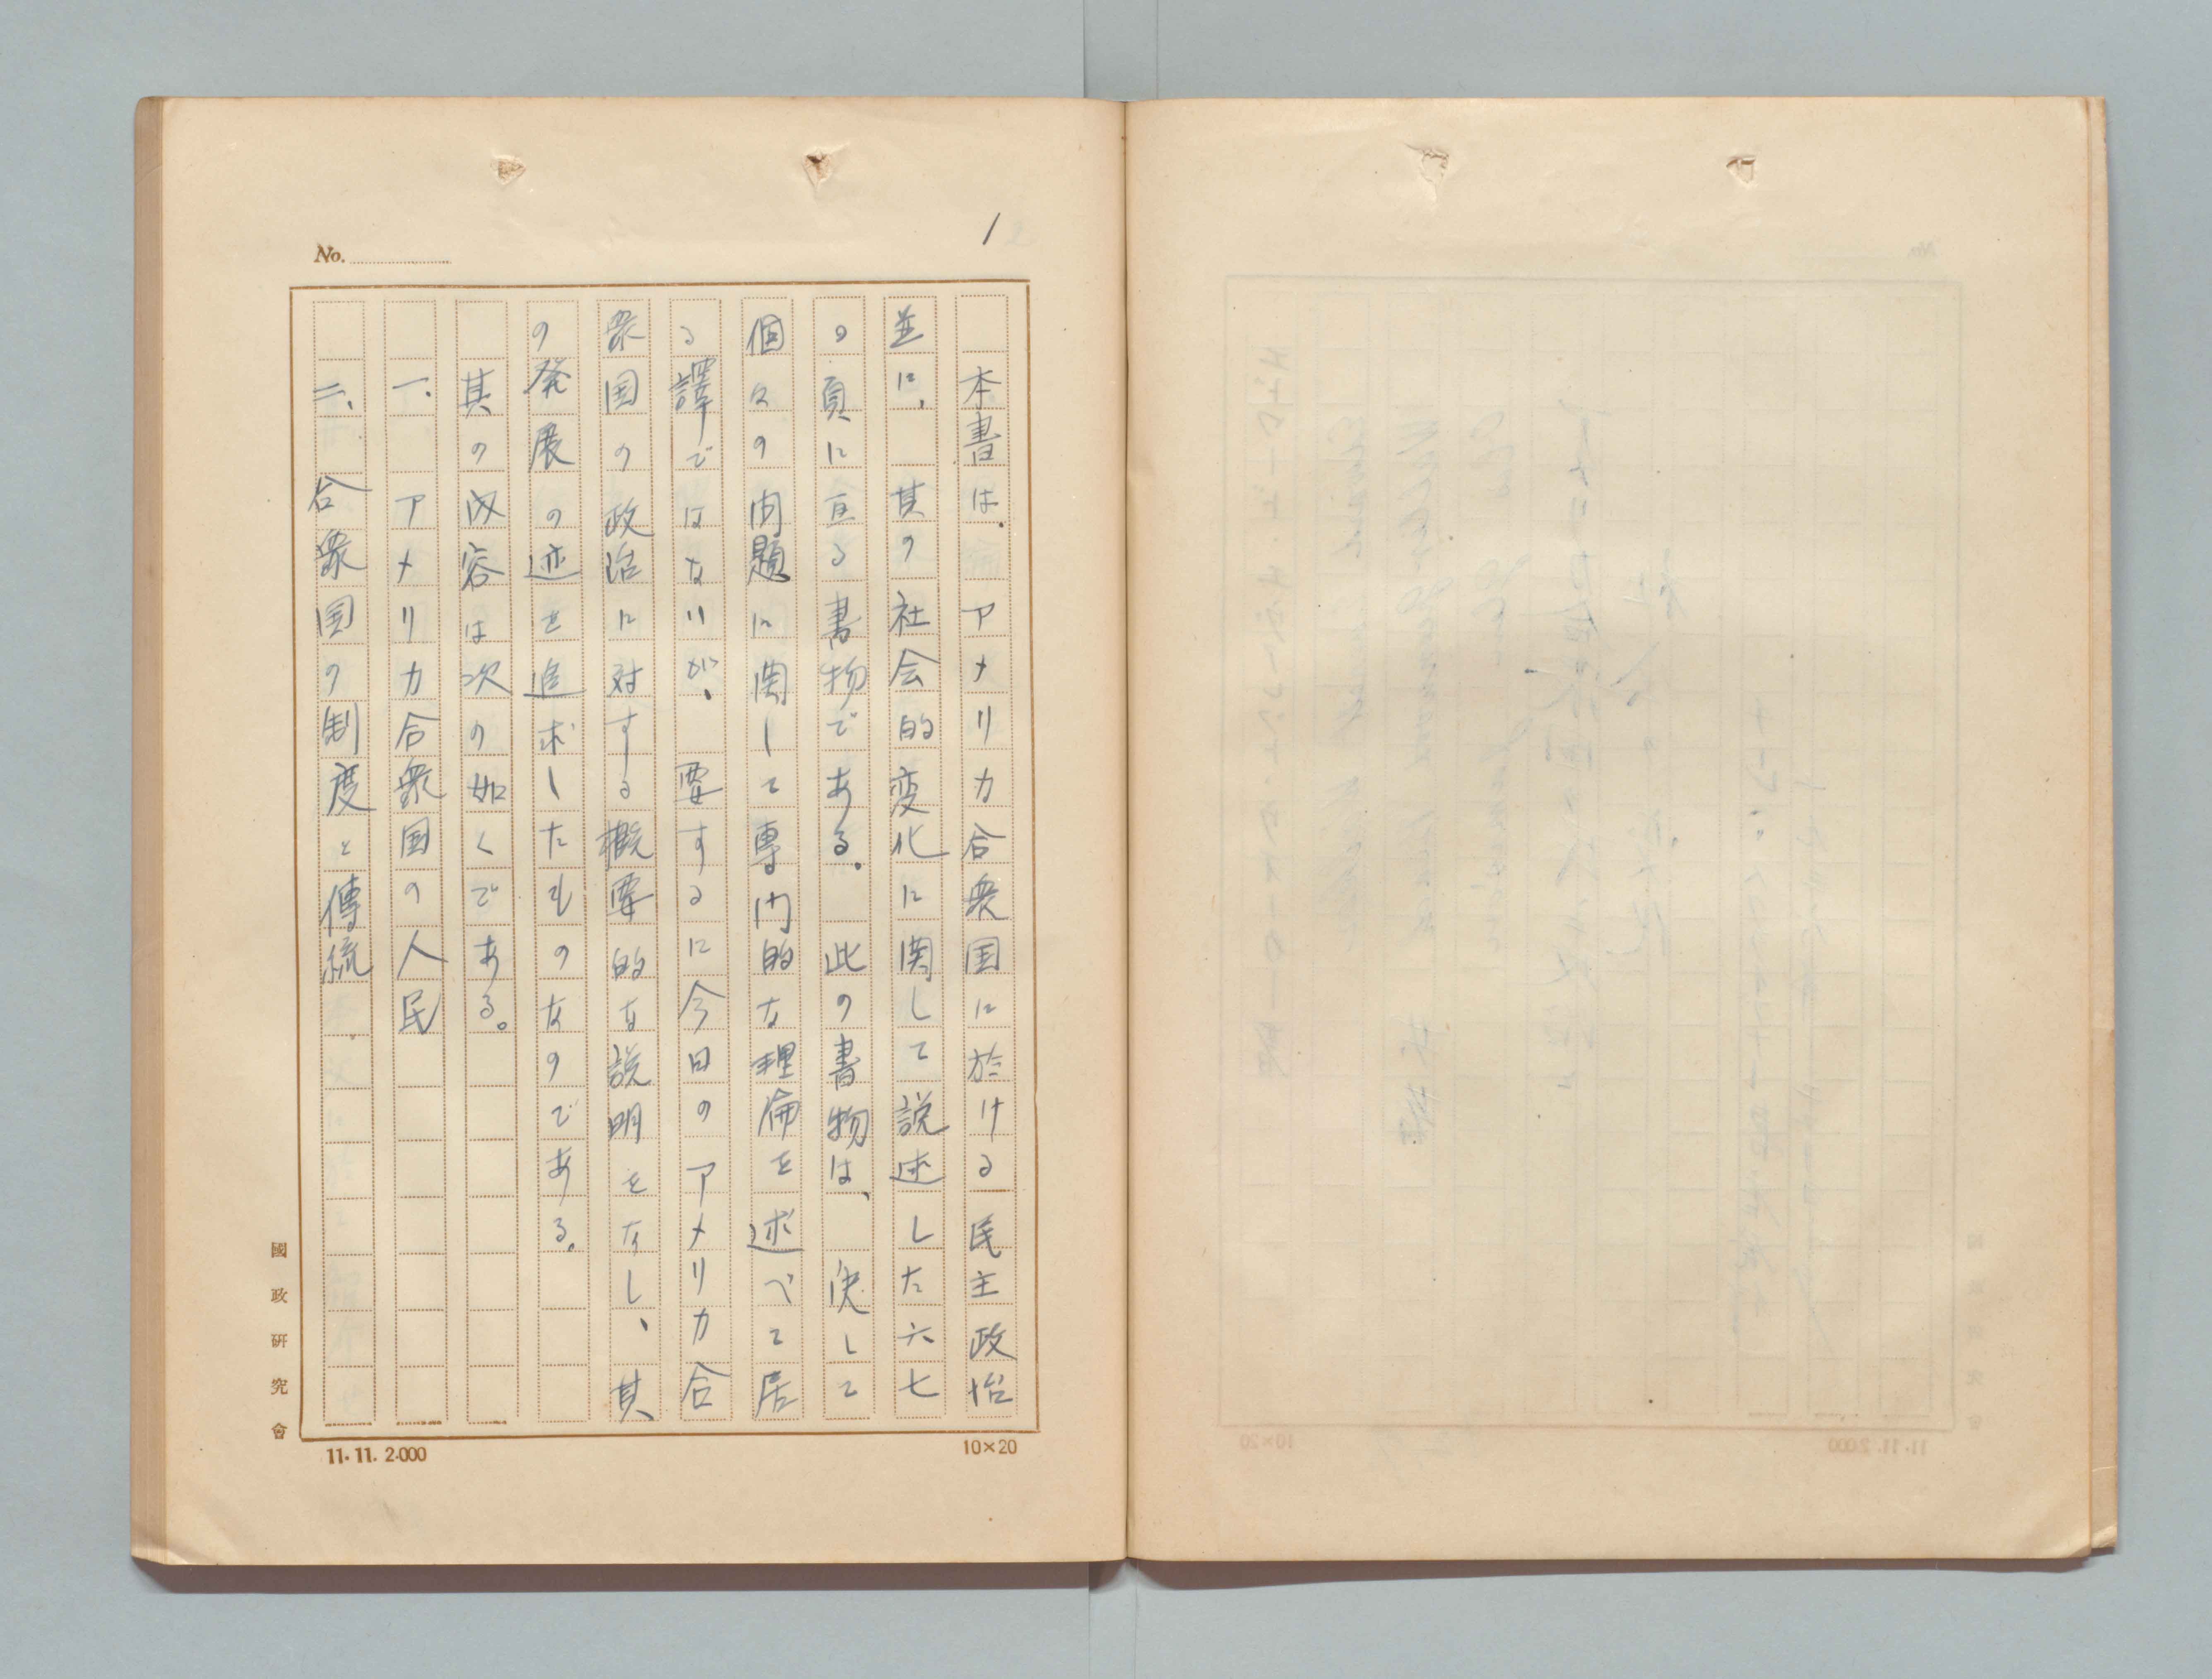 1
No.
本書は、アメリカ合衆国に於ける民主政治
並に、其の社会的変化に関して説述した六七
〇頁に亘る書物である。此の書物は、決して
個々の問題に関して専門的な理倫を述べて居
る譯ではないが、要するに今日のアメリカ合
衆国の政治に対する概要的な説明をなし、其
の発展の迹を追求したものなのである。
其の内容は次の如くである。
一、アメリカ合衆国の人民
二、合衆国の制度と傳統
國政研究會
11.11.2.000
10×20